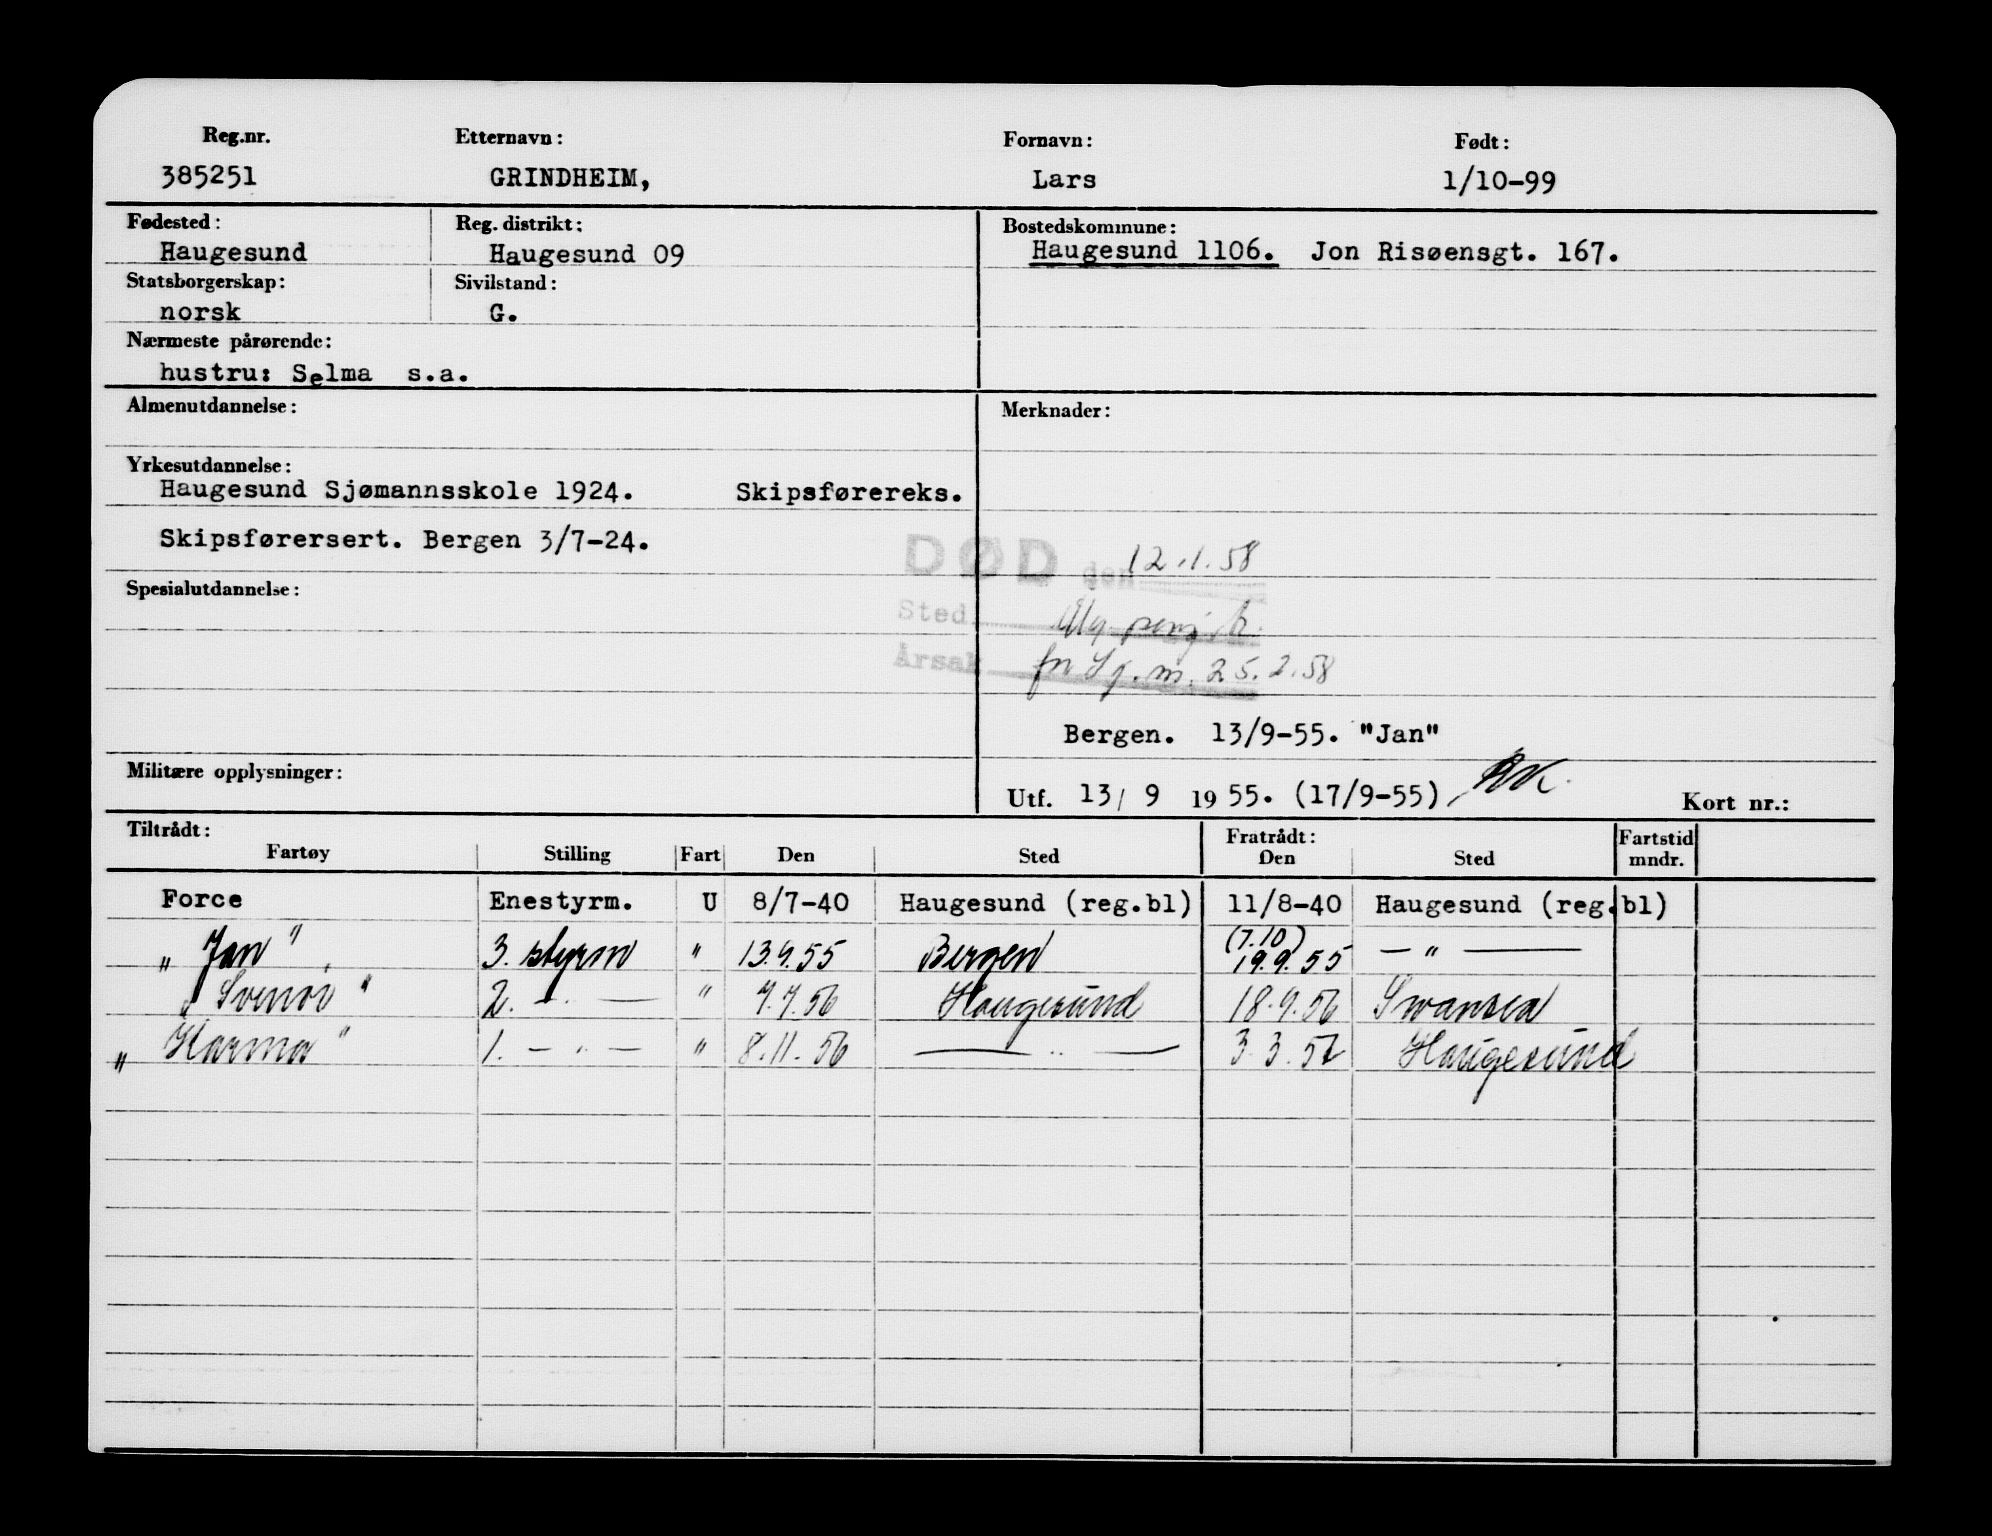 Reg.nr. Etternavn: Fornavn: Født:
385251 GRINDHEIM, Lars 1/10-99
Fødested: Reg. distrikt: Bostedskommune:
Haugesund Haugesund 09 Haugesund 1106. Jon Risøensgt. 167.
Statsborgerskap: Sivilstand:
norsk G.
Nærmeste pårørende:
hustru: Selma s.a.
Almenutdannelse: Merknader:
Yrkesutdannelse:
Haugesund Sjømannsskole 1924. Skipsførereks.
Skipsførersert. Bergen 3/7-24.
DØD den 12.1.58
Spesialutdannelse:
Sted
Årsak m. 25.2.58
Bergen. 13/9-55. "Jan"
Militære opplysninger:
Utf. 13/ 9 1955. (17/9-55) Kort nr.:
Tiltrådt: Fratrådt: Fartstid
Fartøy Stilling Fart Den Sted Den Sted mndr.
Force Enestyrm. U 8/7-40 Haugesund (reg.bl) 11/8-40 Haugesund (reg.bl)
„ Jan " 3. styrm " 13.9.55 Bergen (7.10) 19.9.55 — " —
2. — " — " 7.7.56 Haugesund 18.9.56 Swansea
„ Karma " 1. — " — " 8.11.56 — " — 3.3.57 Haugesund